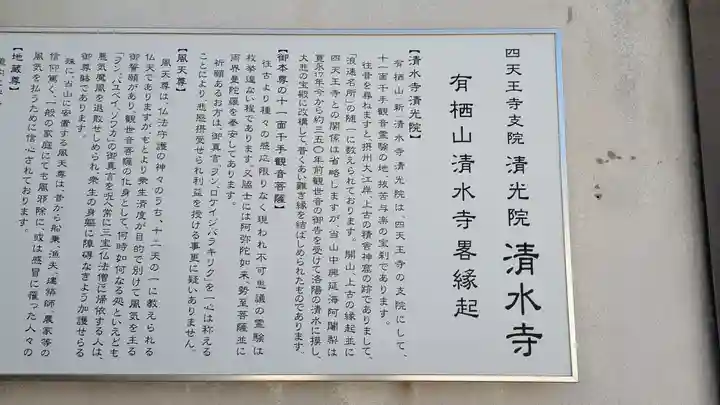 四天王寺支院 清光院 清水寺
有栖山清水寺畧縁起
【清水寺清光院】
有栖山 新清水寺清光院は、四天王寺の支院にして、
十一面千手観音霊験の地、抜苦与楽の宝刹であります。
往昔を尋ねますと、摂州大江岸、上古の精舎神窟の跡でありまして、
「浪速名所」の随一に数えられております。開山、上古の縁起並に
四天王寺との関係は省略しますが、当山中興延海阿闍梨は
寛永17年今から約三五〇年前観世音の御告を受けて洛陽の清水に摸し、
大悲の宝殿に改構して、普くあい難き縁を結ばしめられたものであります。
【御本尊の十一面千手観音菩薩】
往古より種々の感応限りなく現われ不可思議の霊験は
枚挙遑ない程であります。又脇士には阿弥陀如来、勢至菩薩並に
両界曼陀羅を奉安してあります。
祈願あるお方は、御真言、「ヲン、ロケイジ、バラ、キリク」を一心に称える
ことにより悲愍摂受せられ利益を授ける事更に疑いありません。
【風天尊】
風天尊は、仏法守護の神々のうち、十二天の一に教えられる
仏天でありますが、もとより衆生済度が目的で別けて風気を主る
御誓願があり、観世音菩薩の化身として、何時如何なる処といえども
「ヲン、バユベイ、ソワカ」の御真言を呪へ常に三宝仏法僧に帰依する人は、
悪気魔風を退散せしめられ、衆生の身軀に障碍なきよう加護せらる
御尊躰であります。
殊に、当山に安置する風天尊は、昔から船乗、漁夫、建築師、農家等の
信仰篤く、一般の家庭にても風邪除に、或は感冒に罹った人々の
風気を払うために信心されております。
【地蔵尊】